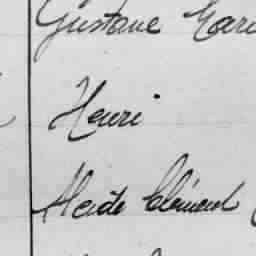 Gustave
Henri
Alcide Clément